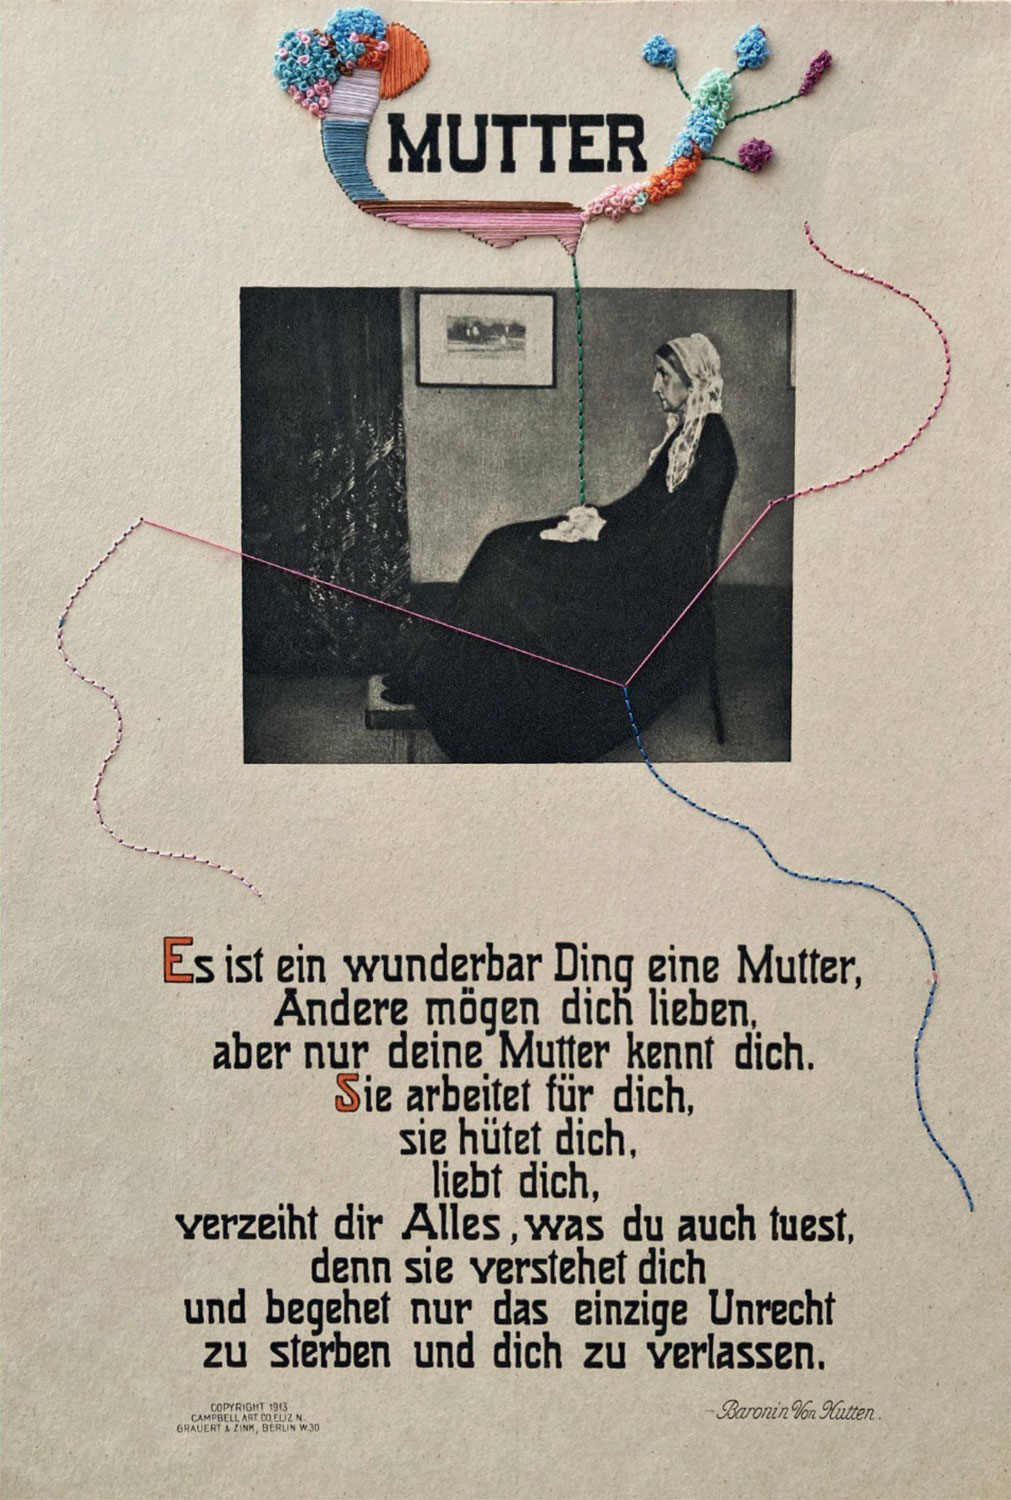 MUTTER
Es ist ein wunderbar Ding eine Mutter,
Andere mögen dich lieben,
aber nur deine Mutter kennt dich.
Sie arbeitet für dich,
sie hütet dich,
liebt dich,
verzeiht dir Alles, was du auch tuest,
denn sie verstehet dich
und begehet nur das einzige Unrecht
zu sterben und dich zu verlassen.
COPYRIGHT 1913
CAMPBELL ART. CO. ELIZ N.
GRAUERT & ZINK, BERLIN W.30
— Baronin Von Hutten.